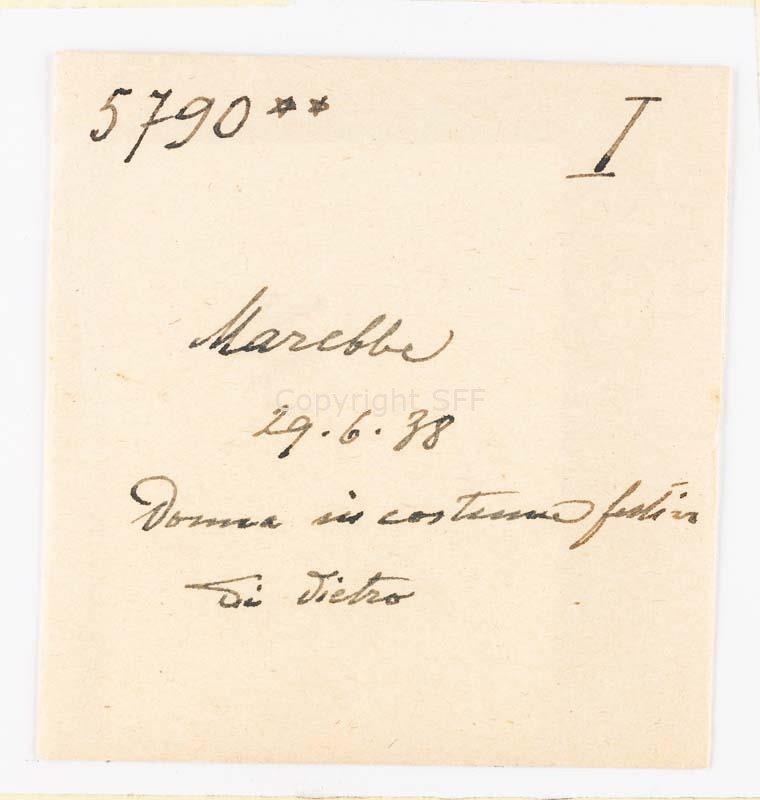 5790** I
Marebbe
Copyright SFF
29.6.38
Donna in costume festivo
di dietro